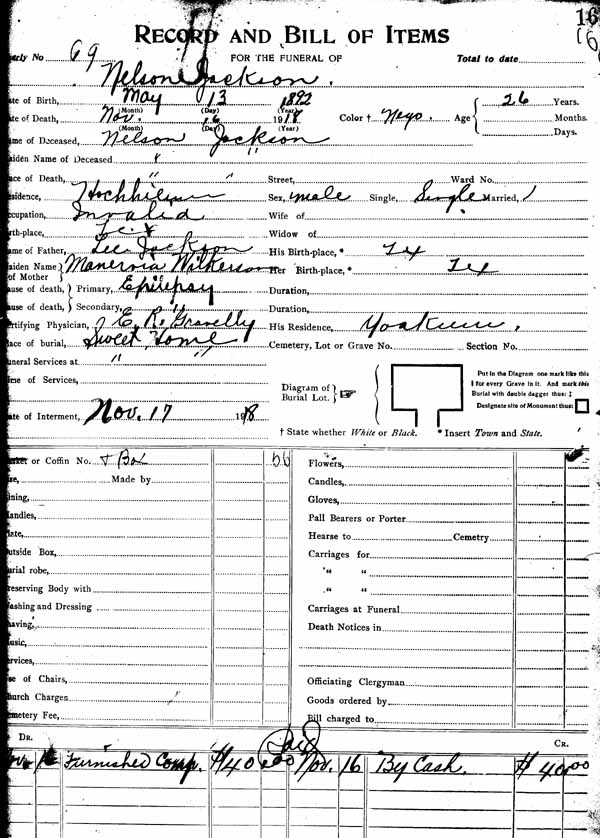 16
16
RECORD AND BILL OF ITEMS
early No 69 FOR THE FUNERAL OF Total to date
Nelson Jackson.
ate of Birth, May 13 1892 26 Years.
(Month) (Day) (Year)
ate of Death, Nov. 16 1918 Color † Nego. Age Months.
(Month) (Day) (Year) Days.
ame of Deceased, Nelson Jackson
aiden Name of Deceased
ace of Death, " " Street, Ward No.
esidence, Hochhiemn Sex, male Single, Single Married,
ccupation, Invalid Wife of
irth-place, Tex Widow of
ame of Father, Lee Jackson His Birth-place, * Tex
aiden Name of Mother Manervia Wilkerson Her Birth-place, * Tex
ause of death, Primary, Epilepsy Duration,
ause of death, Secondary, Duration,
ertifying Physician, J E. R. Gravelly His Residence, Yoakum,
ace of burial, Sweet Home Cemetery, Lot or Grave No. Section No.
uneral Services at " "
ime of Services,
Diagram of Burial Lot.
Put in the Diagram one mark like this
I for every Grave in it. And mark this
Burial with double dagger thus: ‡
Designate site of Monument thus:
ate of Interment, Nov. 17 1918
† State whether White or Black. * Insert Town and State.
asket or Coffin No. + Box 66 Flowers,
ze, Made by Candles,
ining, Gloves,
andles, Pall Bearers or Porter
late, Hearse to Cemetry
utside Box, Carriages for
urial robe, " "
reserving Body with " "
ashing and Dressing Carriages at Funeral
having, Death Notices in
usic,
rvices,
se of Chairs, Officiating Clergyman
hurch Charges Goods ordered by
emetery Fee, Bill charged to
DR. Paid CR.
Nov. 16 Furnished Comp. $40.00 Nov. 16 By Cash. $40.00